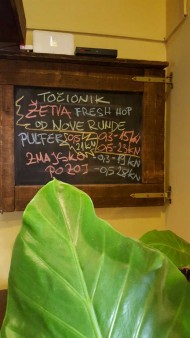 TOČIONIK
ŽETVA FRESH HOP
OD NOVE RUNDE
PULFER 0,3-15KN
0,5-23KN
ZMAJSKO 0,3-19KN
POZOJ -0,5 28KN